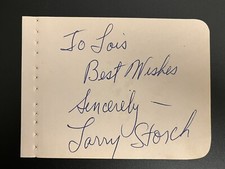 To Lois
Best Wishes
Sincerely —
Larry Storch